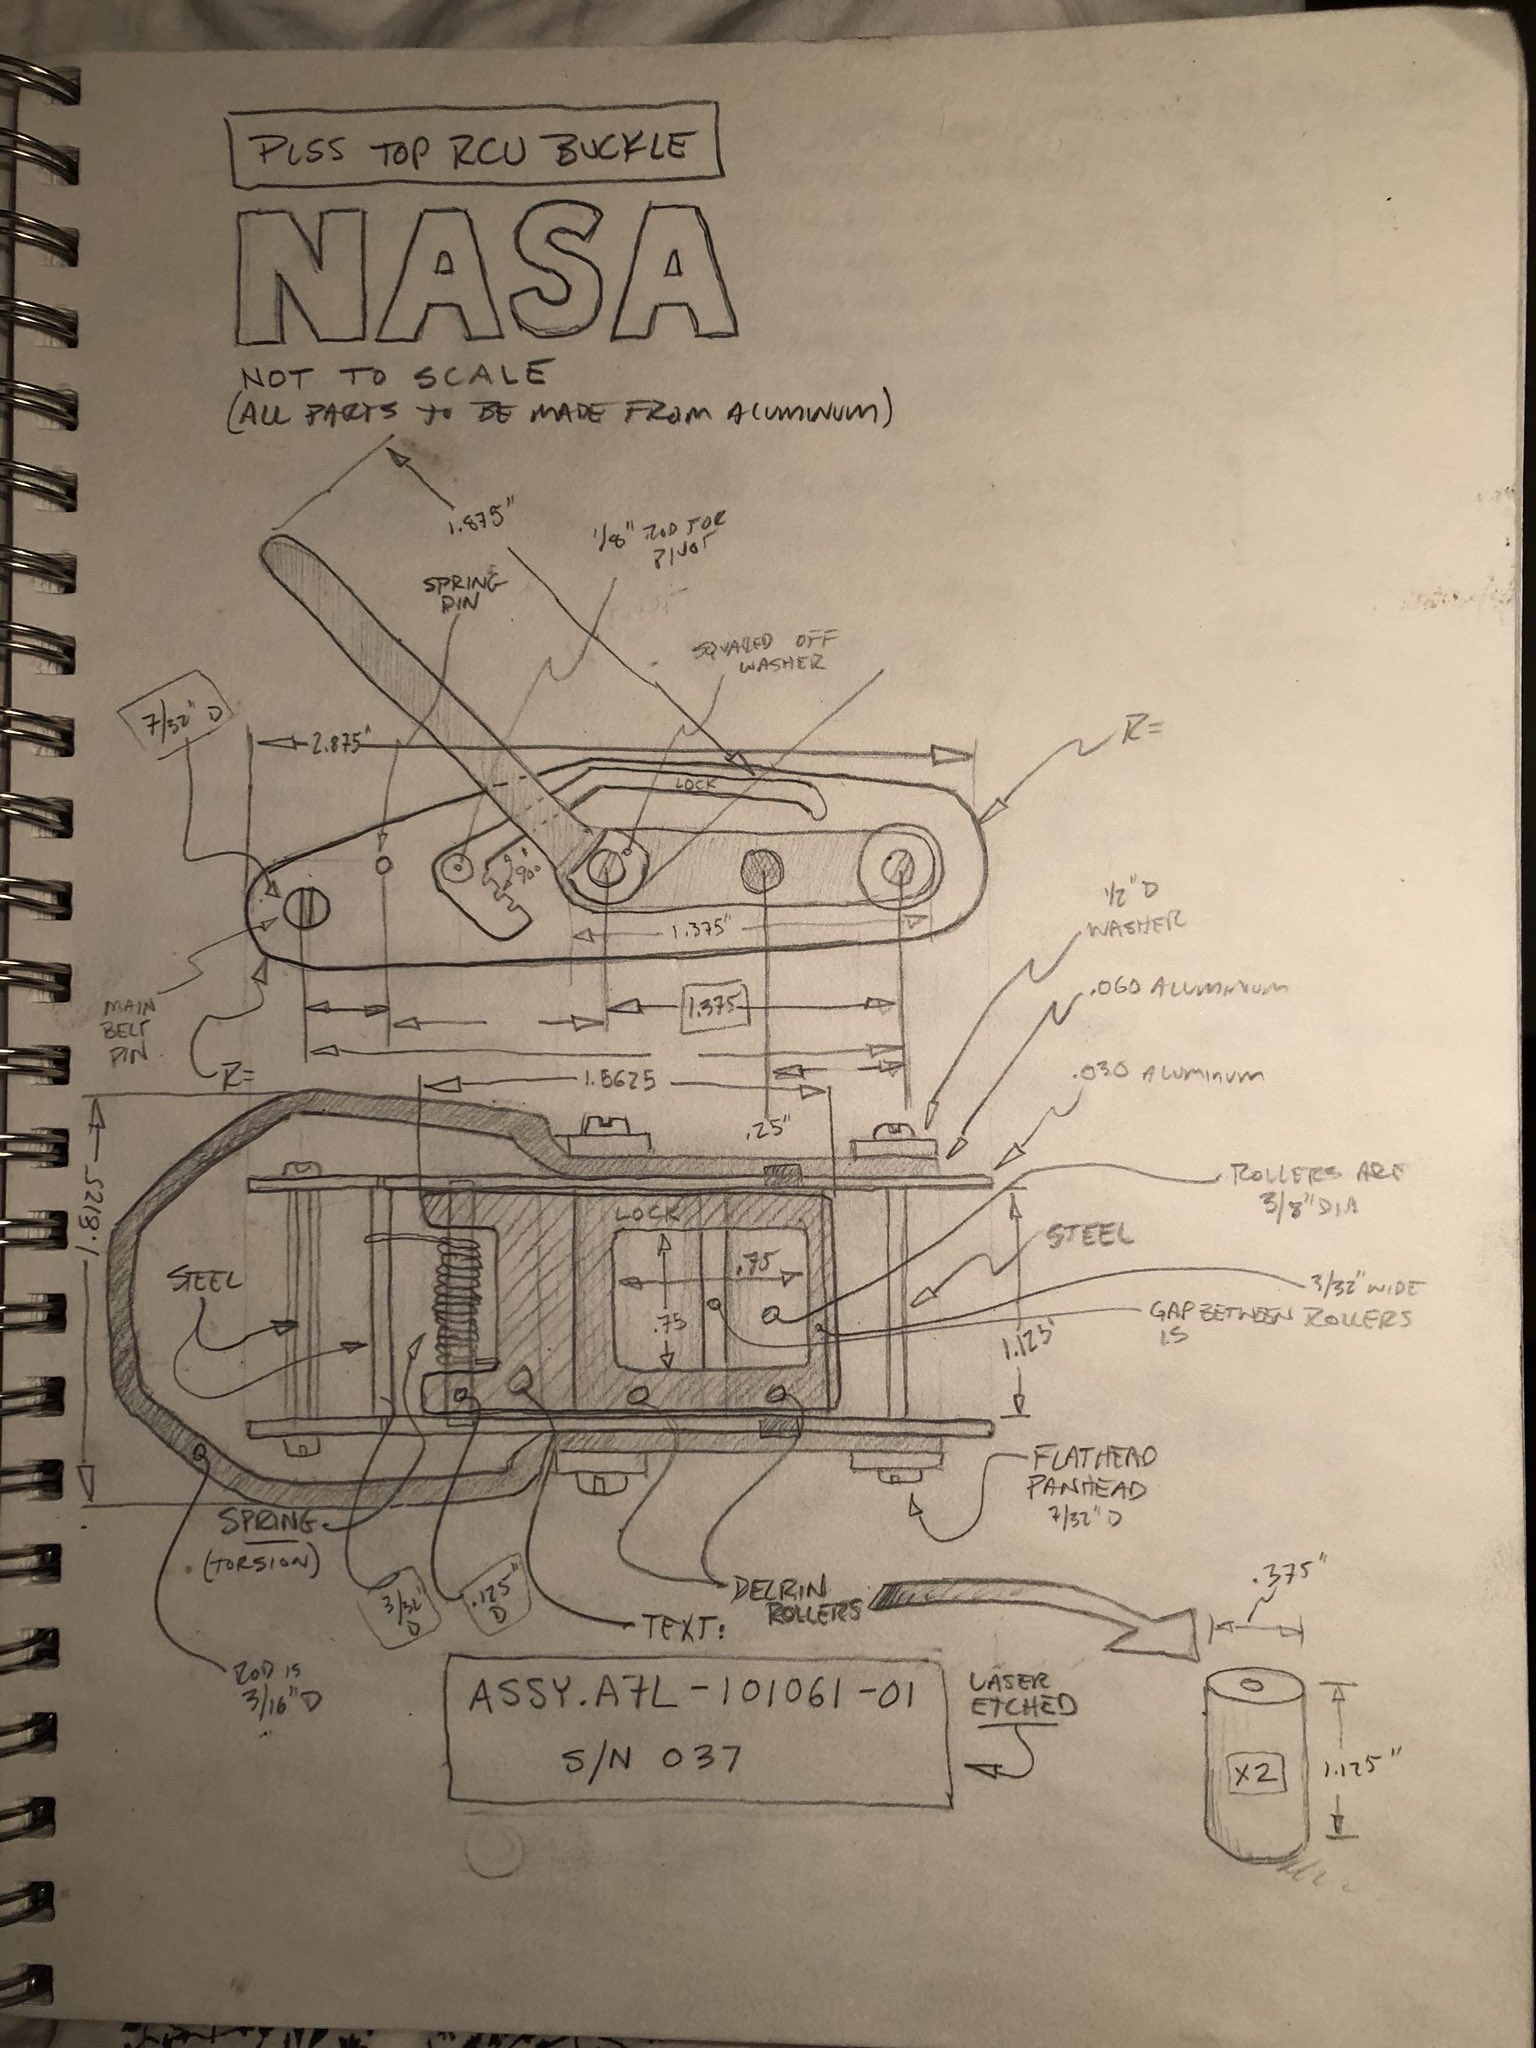 PLSS TOP RCU BUCKLE
NASA
NOT TO SCALE
(ALL PARTS TO BE MADE FROM ALUMINUM)
1.875"
1/8" ROD FOR
PIVOT
SPRING
PIN
SQUARED OFF
WASHER
7/32" D
2.875"
R=
LOCK
90°
1.375"
1/2" D
WASHER
MAIN
BELT
PIN
1.375
.060 ALUMINUM
R=
1.5625
.030 ALUMINUM
.25"
1.8125
ROLLERS ARE
3/8" DIA
LOCK
STEEL
.75
STEEL
.75
3/32" WIDE
GAP BETWEEN ROLLERS
IS
1.125"
FLATHEAD
PANHEAD
7/32" D
SPRING
(TORSION)
3/32"
D
.125"
D
DELRIN
ROLLERS
.375"
TEXT:
ROD IS
3/16" D
ASSY. A7L-101061-01
S/N 037
LASER
ETCHED
X2
1.125"